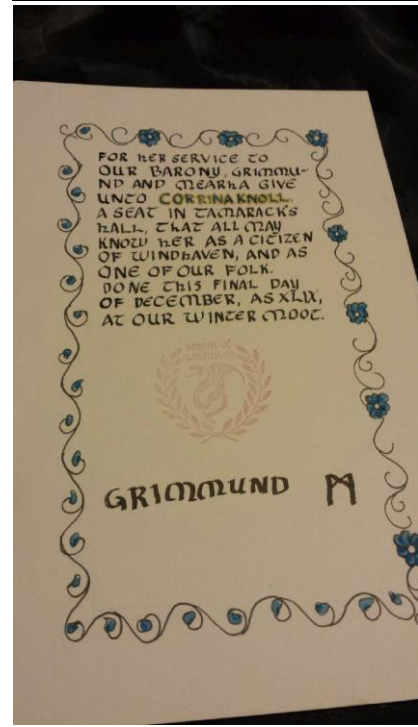 FOR HER SERVICE TO
OUR BARONY, GRIMMU-
ND AND MEARHA GIVE
UNTO CORRINA KNOLL.
A SEAT IN TAMARACK'S
HALL, THAT ALL MAY
KNOW HER AS A CITIZEN
OF WINDHAVEN, AND AS
ONE OF OUR FOLK.
DONE THIS FINAL DAY
OF DECEMBER, AS XLIX,
AT OUR WINTER MOOT.
GRIMMUND ᛗ